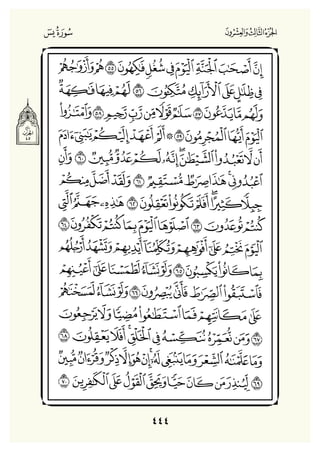 سُورَةُ يسٓ
الجُزْءُ الثَّالِثُ وَالعِشْرُونَ
إِنَّ أَصْحَٰبَ ٱلْجَنَّةِ ٱلْيَوْمَ فِي شُغُلٍ فَٰكِهُونَ ٥٥ هُمْ وَأَزْوَٰجُهُمْ
فِي ظِلَٰلٍ عَلَى ٱلْأَرَآئِكِ مُتَّكِـُٔونَ ٥٦ لَهُمْ فِيهَا فَٰكِهَةٌ
وَلَهُم مَّا يَدَّعُونَ ٥٧ سَلَٰمٌ قَوْلًا مِّن رَّبٍّ رَّحِيمٍ ٥٨ وَٱمْتَٰزُوا۟
ٱلْيَوْمَ أَيُّهَا ٱلْمُجْرِمُونَ ٥٩ ۞ أَلَمْ أَعْهَدْ إِلَيْكُمْ يَٰبَنِيٓ ءَادَمَ
أَن لَّا تَعْبُدُوا۟ ٱلشَّيْطَٰنَ ۖ إِنَّهُۥ لَكُمْ عَدُوٌّ مُّبِينٌ ٦٠ وَأَنِ
ٱعْبُدُونِي ۚ هَٰذَا صِرَٰطٌ مُّسْتَقِيمٌ ٦١ وَلَقَدْ أَضَلَّ مِنكُمْ
جِبِلًّا كَثِيرًا ۖ أَفَلَمْ تَكُونُوا۟ تَعْقِلُونَ ٦٢ هَٰذِهِۦ جَهَنَّمُ ٱلَّتِي
كُنتُمْ تُوعَدُونَ ٦٣ ٱصْلَوْهَا ٱلْيَوْمَ بِمَا كُنتُمْ تَكْفُرُونَ ٦٤
ٱلْيَوْمَ نَخْتِمُ عَلَىٰٓ أَفْوَٰهِهِمْ وَتُكَلِّمُنَآ أَيْدِيهِمْ وَتَشْهَدُ أَرْجُلُهُم
بِمَا كَانُوا۟ يَكْسِبُونَ ٦٥ وَلَوْ نَشَآءُ لَطَمَسْنَا عَلَىٰٓ أَعْيُنِهِمْ
فَٱسْتَبَقُوا۟ ٱلصِّرَٰطَ فَأَنَّىٰ يُبْصِرُونَ ٦٦ وَلَوْ نَشَآءُ لَمَسَخْنَٰهُمْ
عَلَىٰ مَكَانَتِهِمْ فَمَا ٱسْتَطَٰعُوا۟ مُضِيًّا وَلَا يَرْجِعُونَ
٦٧ وَمَن نُّعَمِّرْهُ نُنَكِّسْهُ فِي ٱلْخَلْقِ ۖ أَفَلَا يَعْقِلُونَ ٦٨
وَمَا عَلَّمْنَٰهُ ٱلشِّعْرَ وَمَا يَنۢبَغِي لَهُۥٓ ۚ إِنْ هُوَ إِلَّا ذِكْرٌ وَقُرْءَانٌ مُّبِينٌ
٦٩ لِّيُنذِرَ مَن كَانَ حَيًّا وَيَحِقَّ ٱلْقَوْلُ عَلَى ٱلْكَٰفِرِينَ ٧٠
٤٤٤